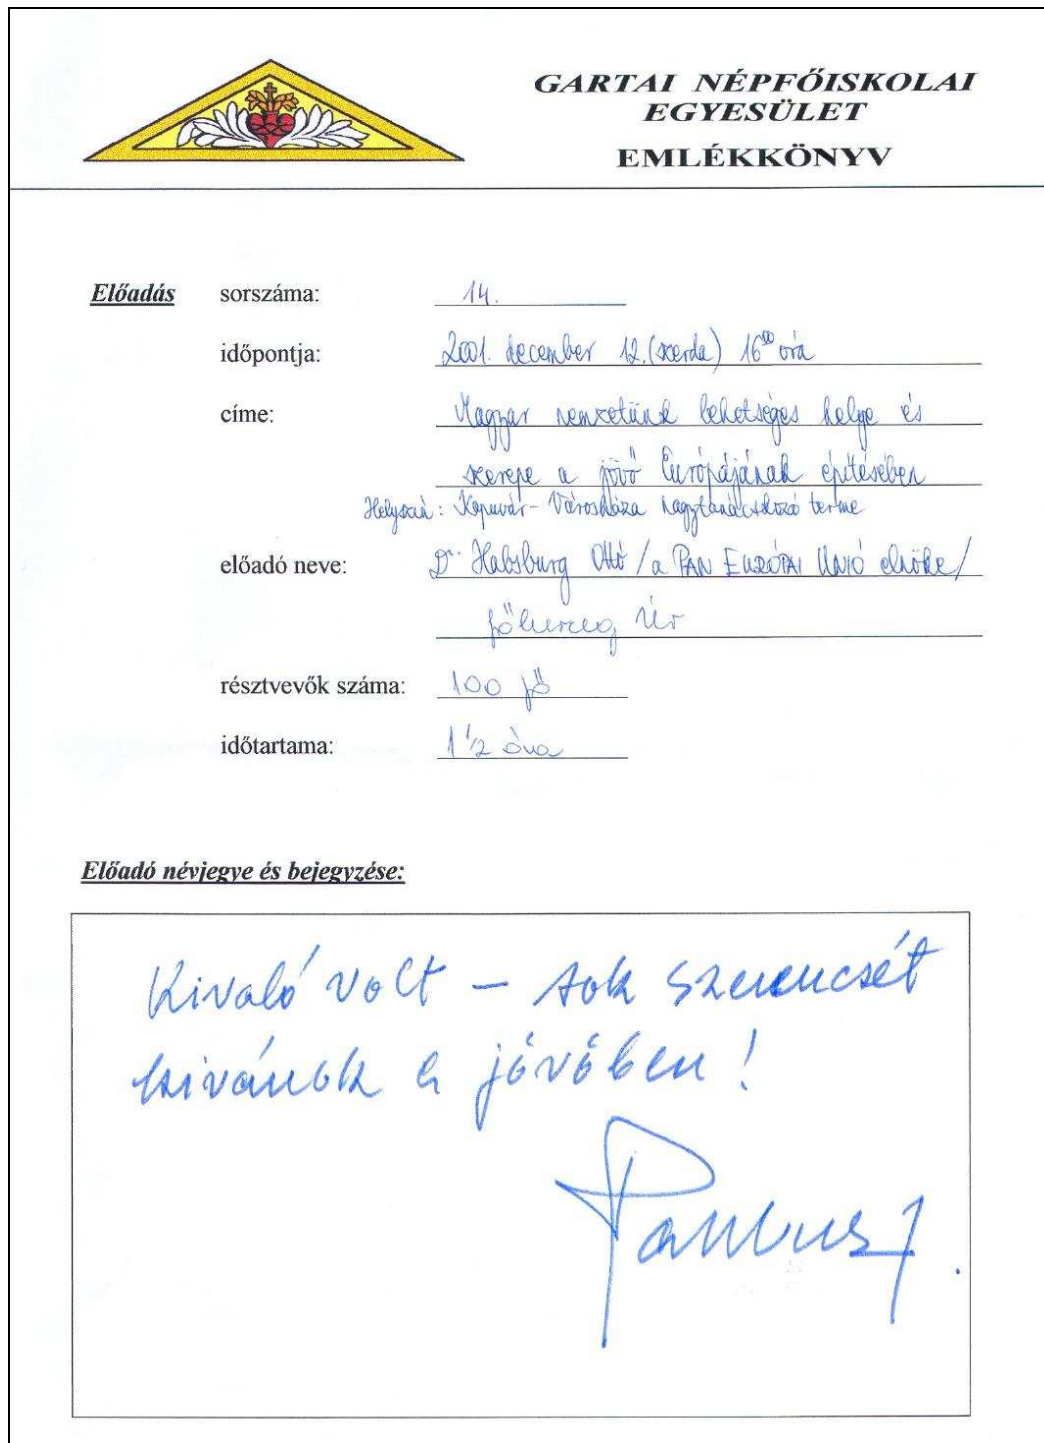 GARTAI NÉPFŐISKOLAI
EGYESÜLET
EMLÉKKÖNYV
Előadás sorszáma: 14.
időpontja: 2001. december 12. (szerda) 16⁰⁰ óra
címe: Magyar nemzetünk lehetséges helye és
szerepe a jövő Európájának építésében
Helyszín: Kapuvár - Városháza nagytanácskozó terme
előadó neve: Dr. Habsburg Ottó /a PAN EURÓPAI UNIÓ elnöke/
főherceg Úr
résztvevők száma: 100 fő
időtartama: 1 1/2 óra
Előadó névjegye és bejegyzése:
Kivaló volt – sok szerencsét
kivánok a jövőben!